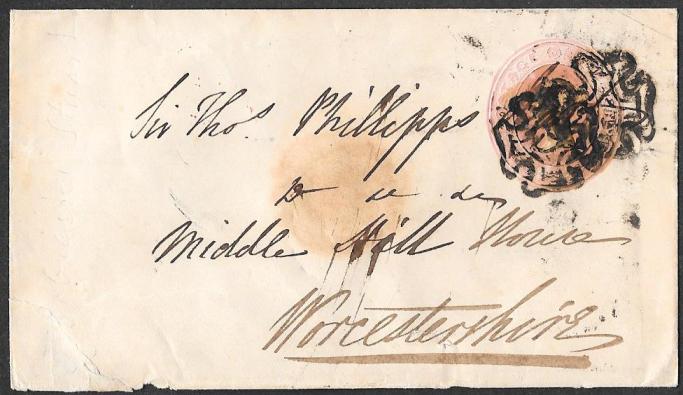 Sir Thos. Phillipps
Middle Hill House
Worcestershire